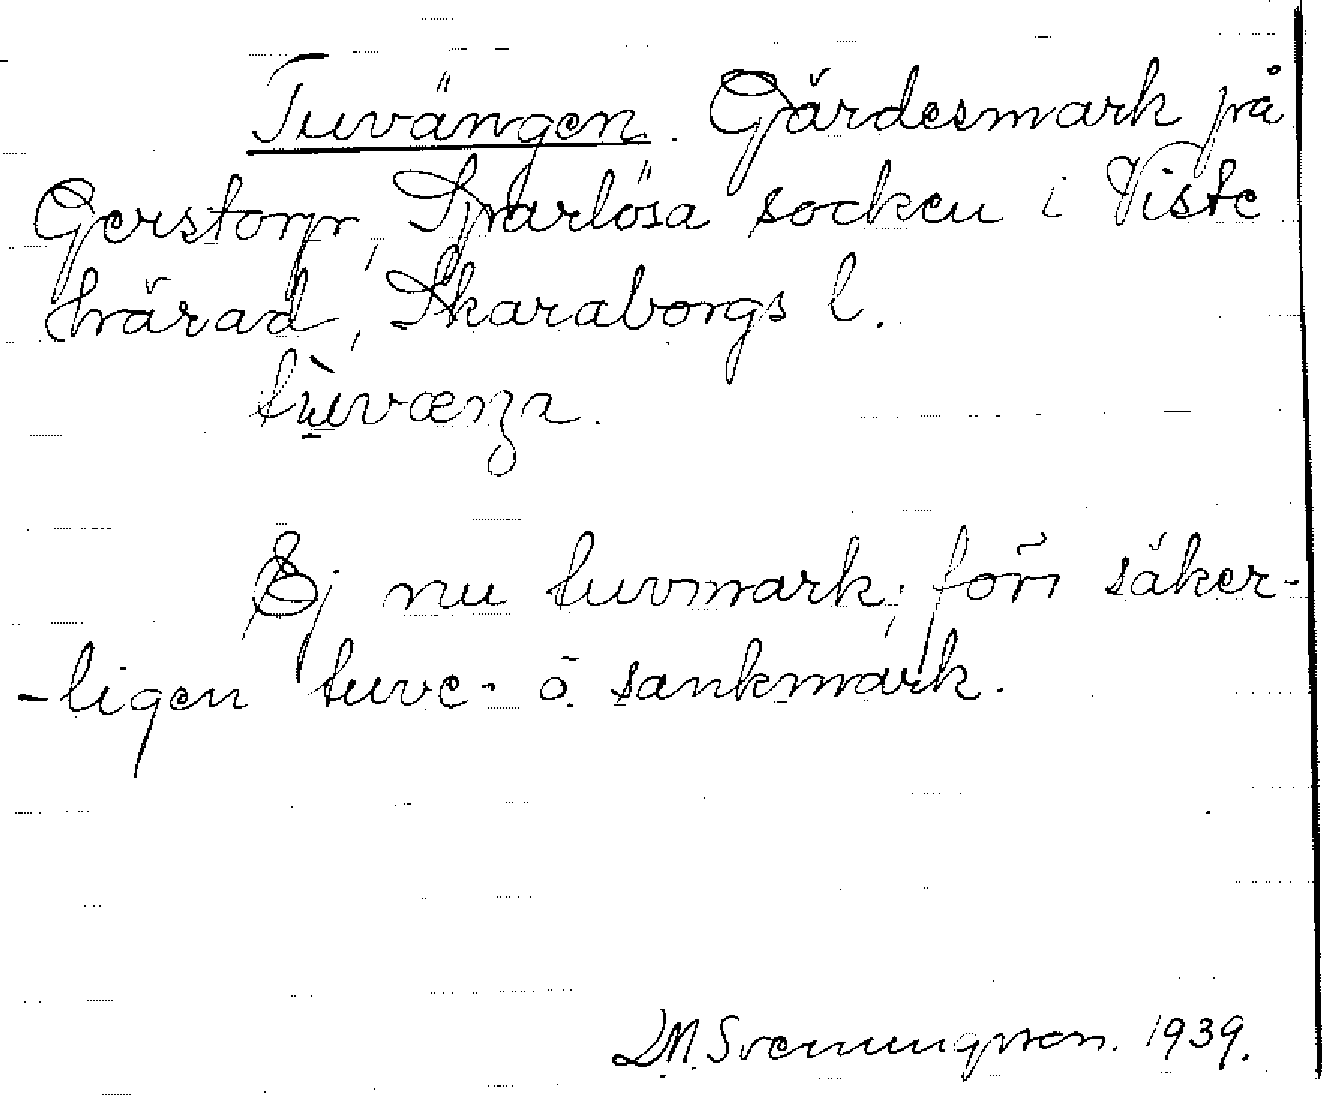 Tuvängen. Gärdesmark på
Gerstorp, Sparlösa socken i Viste
härad, Skaraborgs l.
tùvænga.
Ej nu tuvmark; förr säker-
-ligen tuve- o. sankmark.
D.M. Svenningsson. 1939.